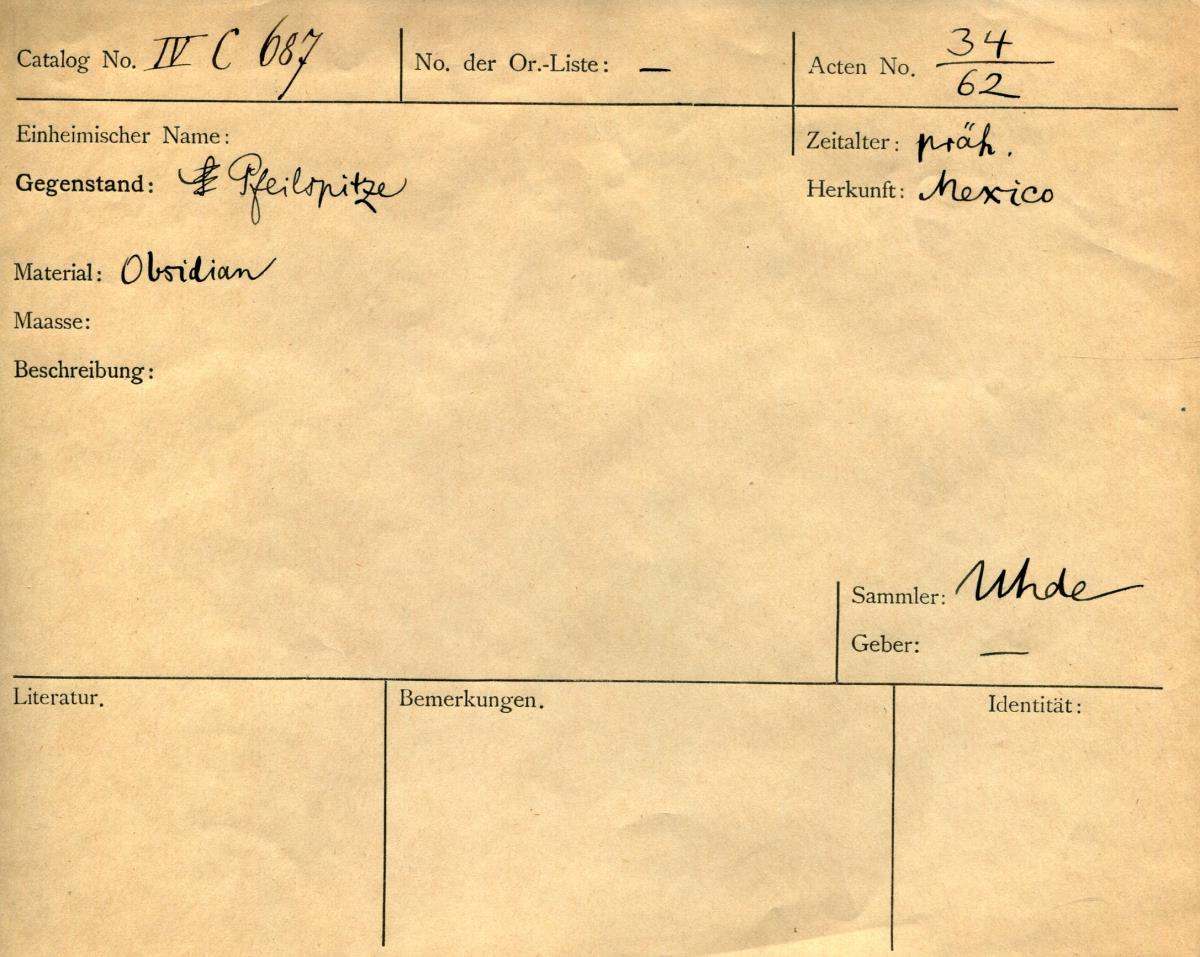 Catalog No. IV C 687
No. der Or.-Liste: —
Acten No. 34/62
Einheimischer Name:
Zeitalter: präh.
Gegenstand: Pfeilspitze
Herkunft: Mexico
Material: Obsidian
Maasse:
Beschreibung:
Sammler: Uhde
Geber: —
Literatur.
Bemerkungen.
Identität: